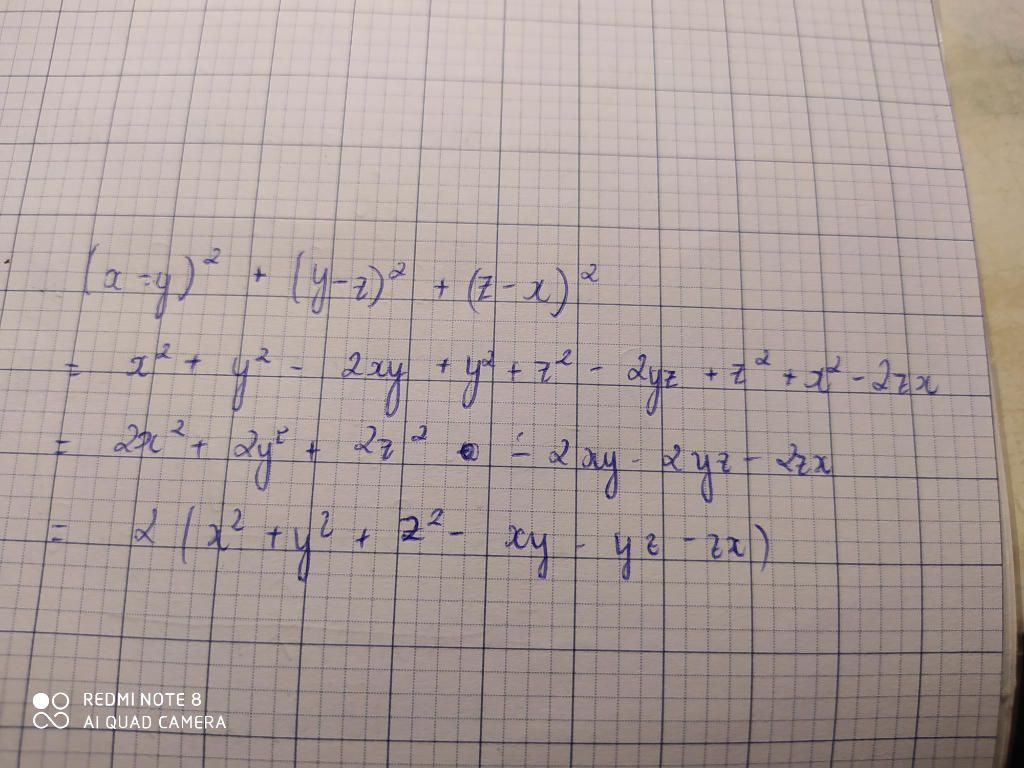 (x-y)² + (y-z)² + (z-x)²
= x² + y² - 2xy + y² + z² - 2yz + z² + x² - 2zx
= 2x² + 2y² + 2z² - 2xy - 2yz - 2zx
= 2(x² + y² + z² - xy - yz - zx)
REDMI NOTE 8
AI QUAD CAMERA